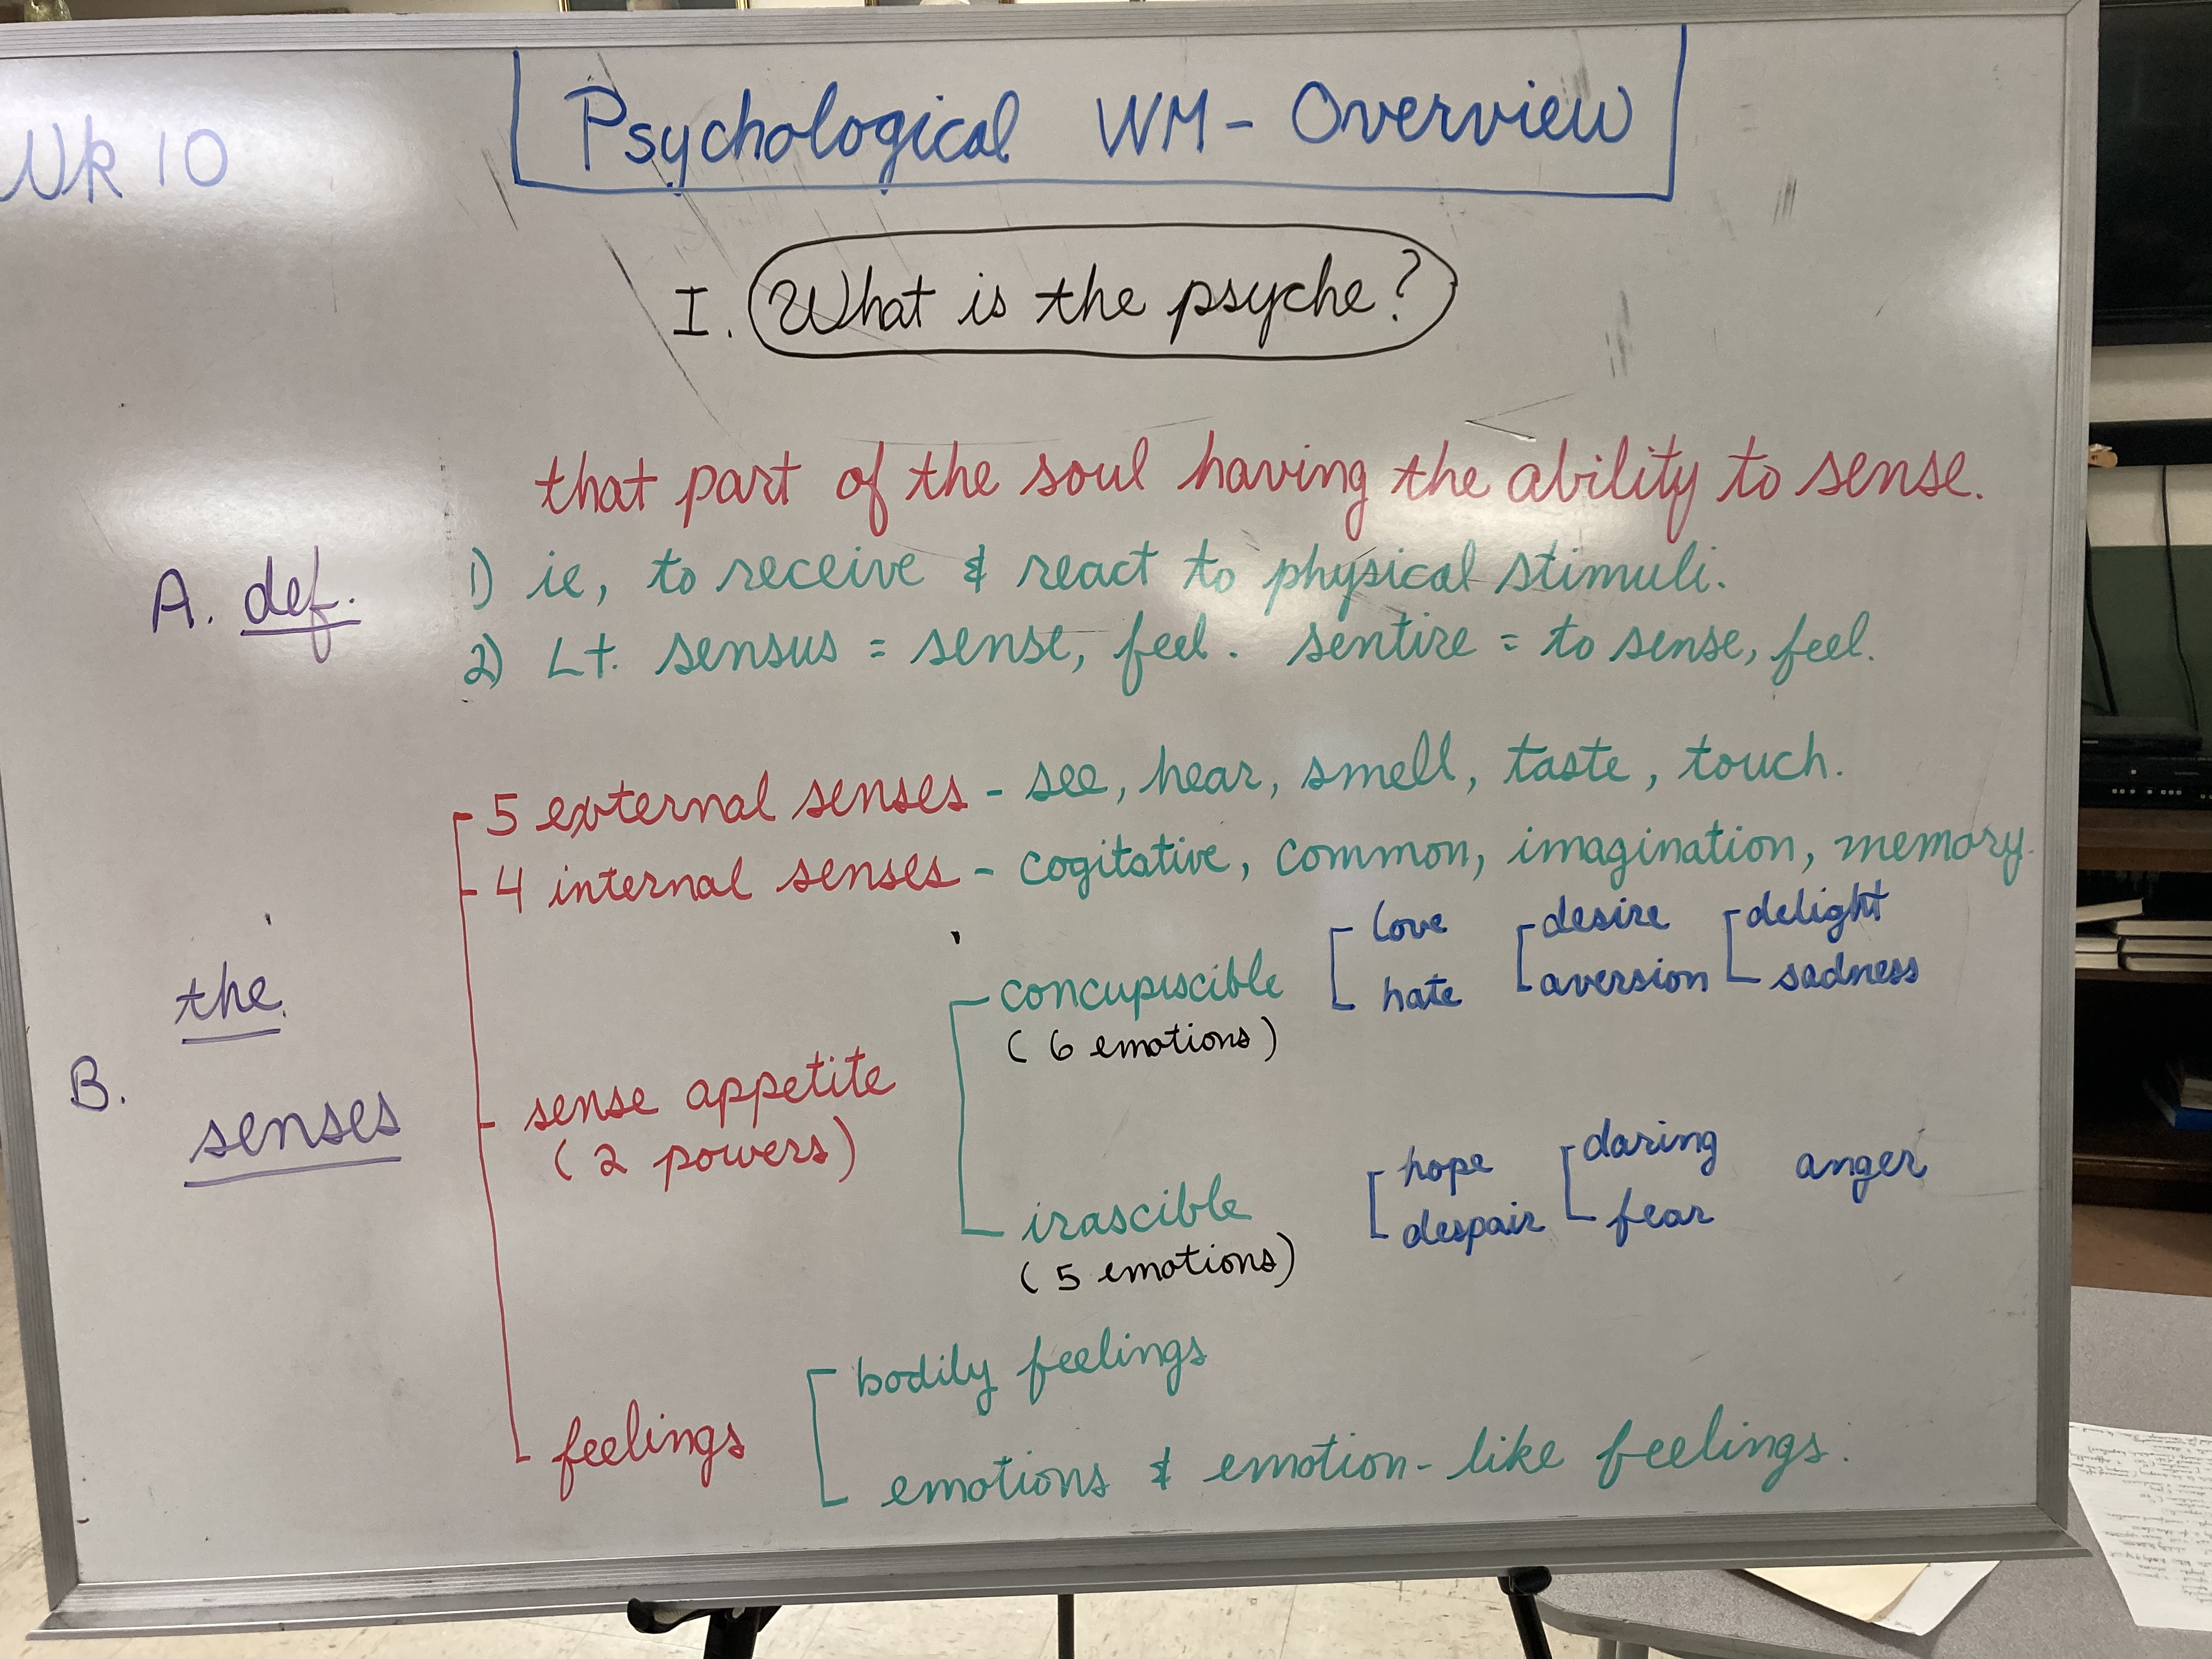 Wk 10
Psychological WM - Overview
I. What is the psyche?
that part of the soul having the ability to sense.
A. def.
1) ie, to receive & react to physical stimuli.
2) Lt. sensus = sense, feel. sentire = to sense, feel.
B. the senses
5 external senses - see, hear, smell, taste, touch.
4 internal senses - cogitative, common, imagination, memory.
sense appetite
(2 powers)
concupiscible
(6 emotions)
love
hate
desire
aversion
delight
sadness
irascible
(5 emotions)
hope
despair
daring
fear
anger
feelings
bodily feelings
emotions & emotion-like feelings.